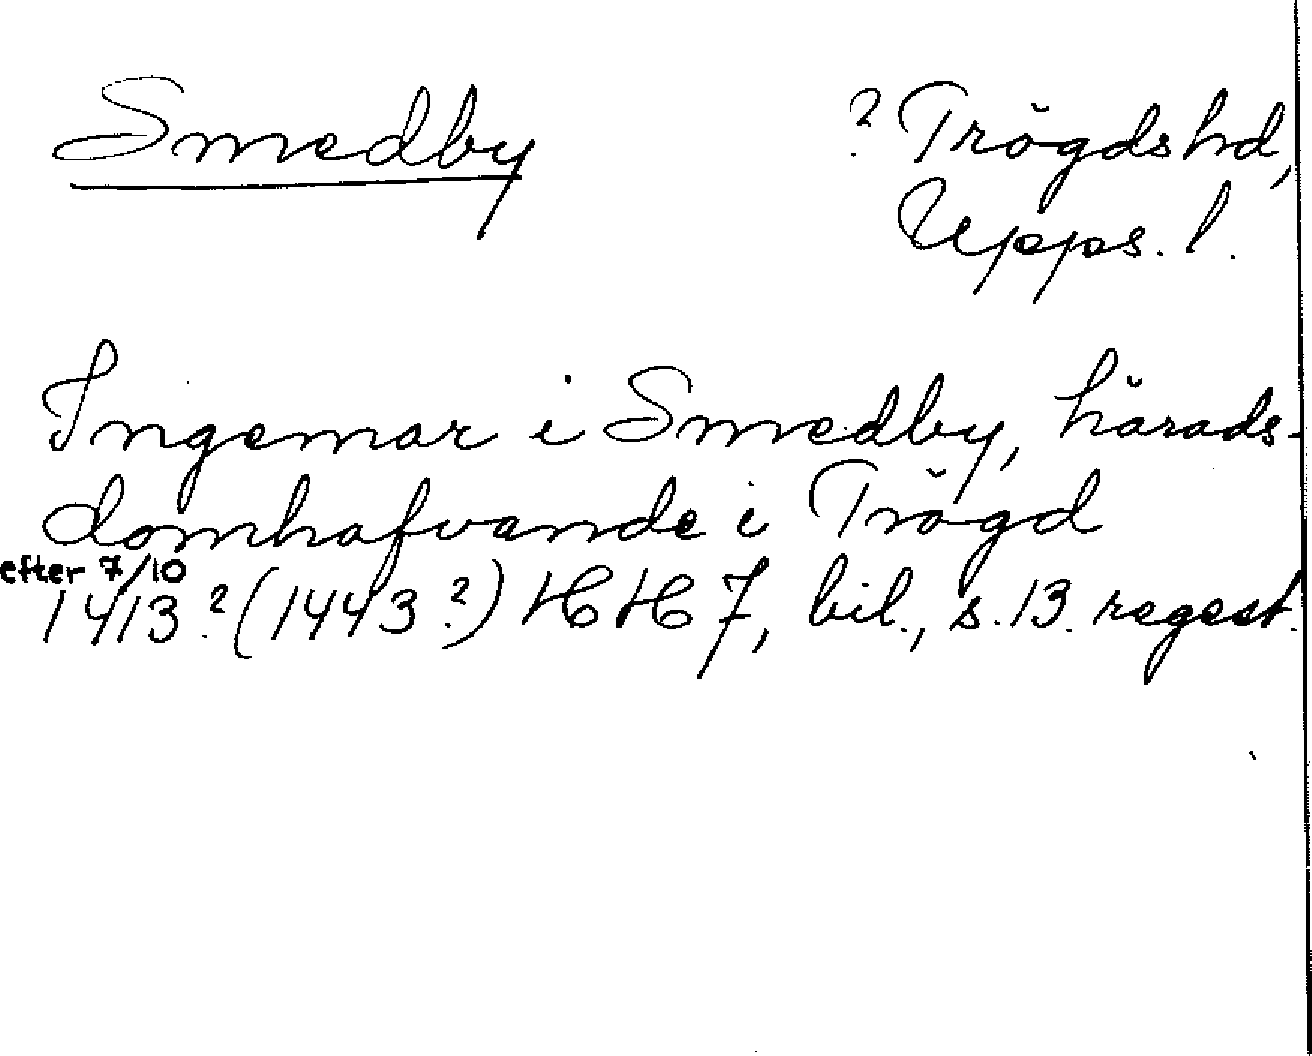 Smedby
? Trögds hd,
Upps. l.
Ingemar i Smedby, härads-
domhafvande i Trögd
efter 7/10
1413? (1443?) HH 7, bil., s. 13. regest.